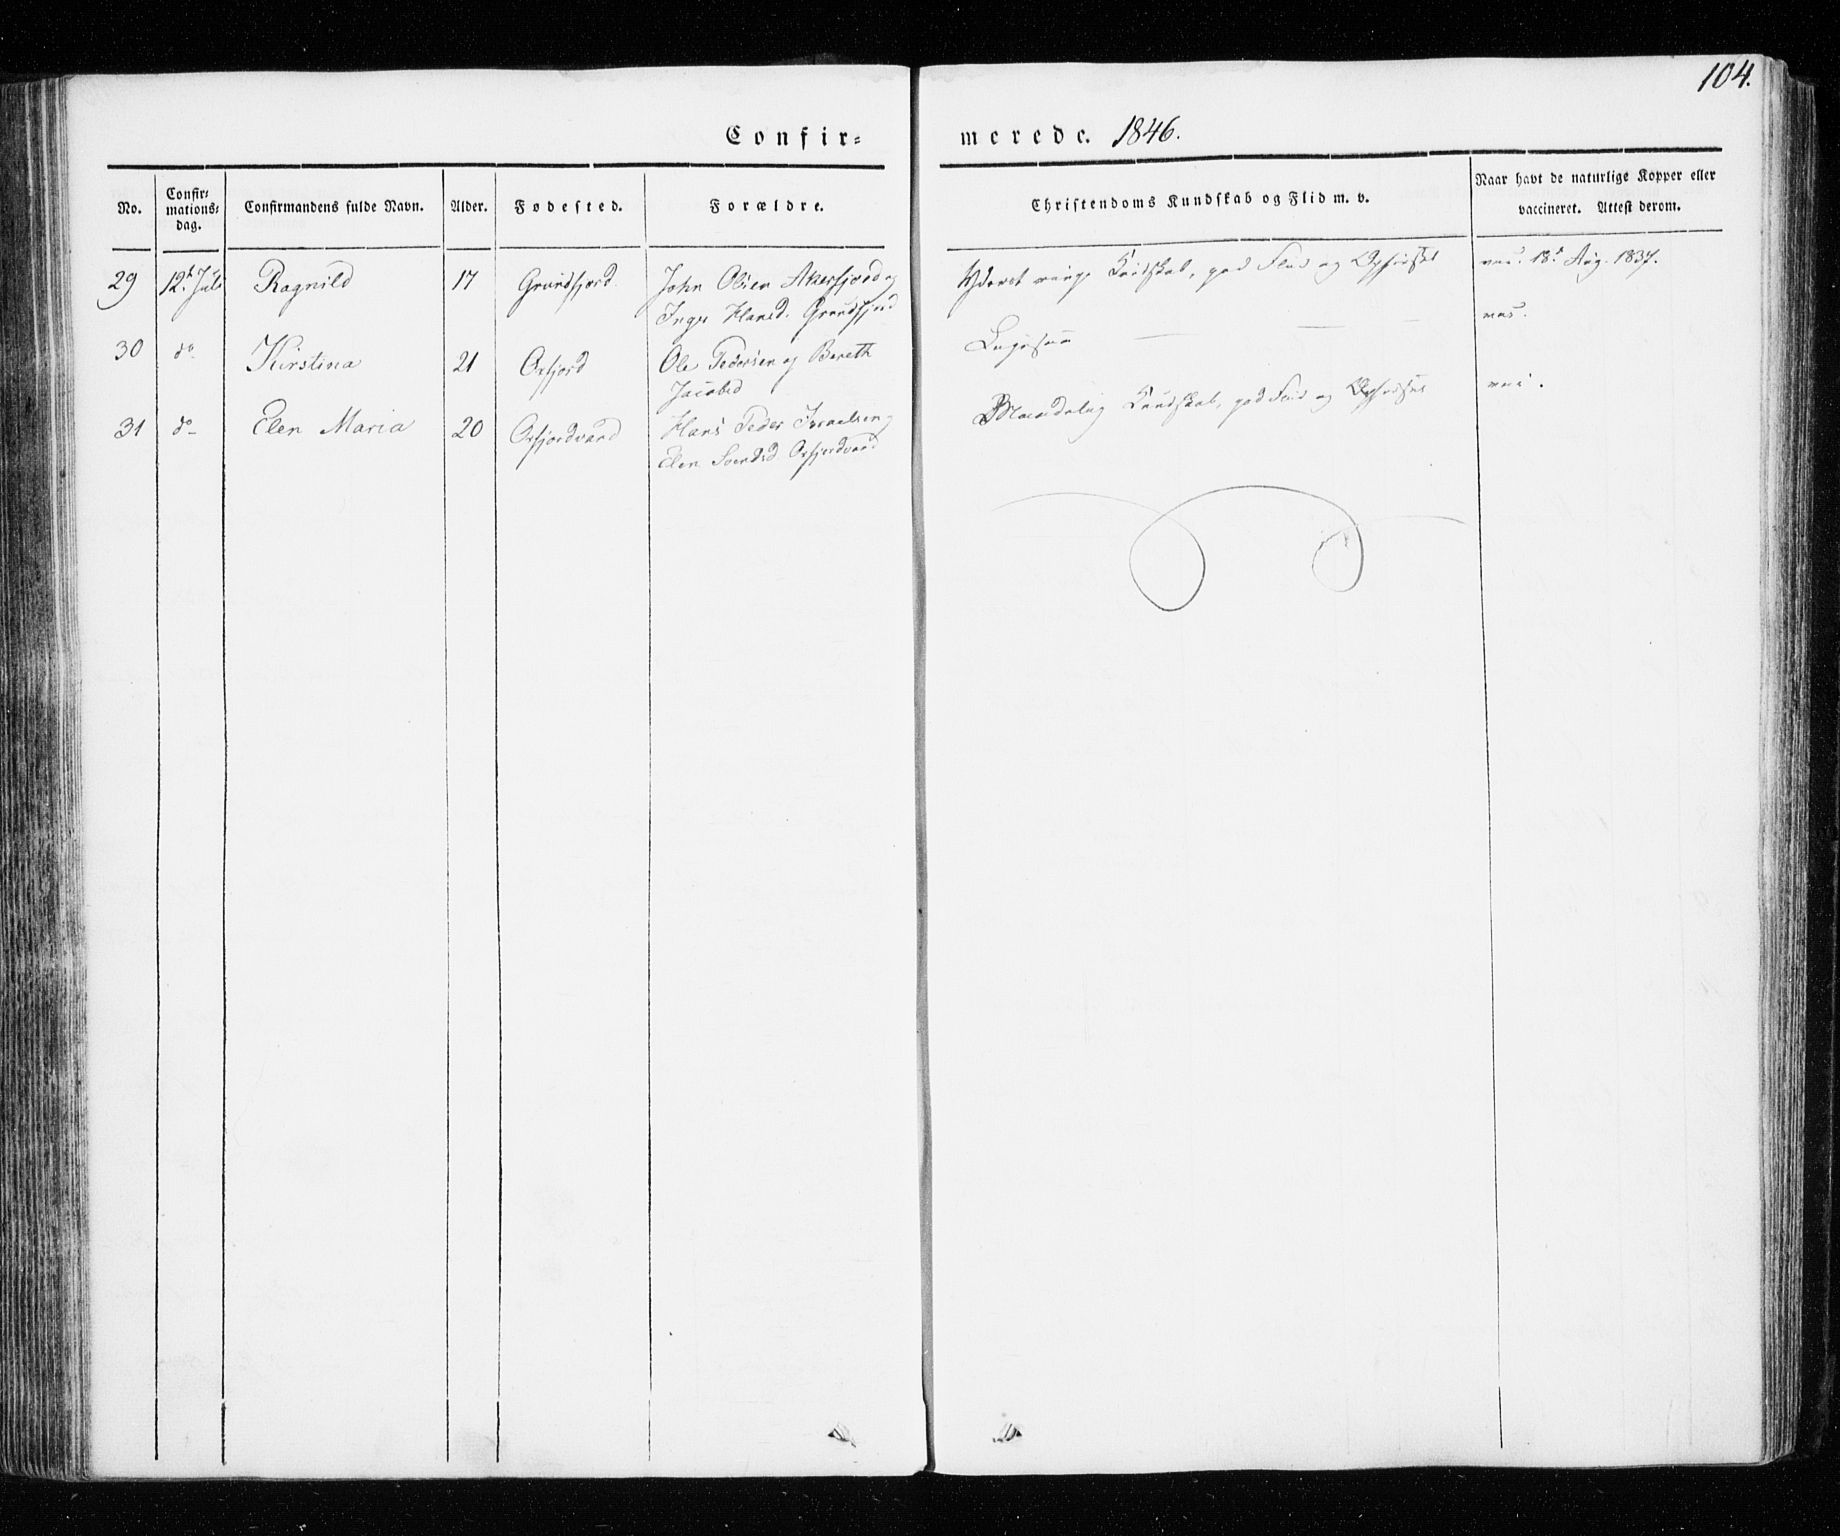 104.
Confir=
merede. 1846.
No.
Confir=
mations=
dag.
Confirmandens fulde Navn.
Alder.
Fødested.
Forældre.
Christendoms Kundskab og Flid m. v.
Naar havt de naturlige Kopper eller
vaccineret. Attest derom.
29 12t Juli Ragnild 17 Grundfjord John Olsen Akerfjord og
Inger Hansd. Grundfjord
Yderst ringe Kundskab, god Flid og Opførsel
vac. 18d Aug. 1837.
30 do Kirstina 21 Oxfjord Ole Pedersen og Bereth
Jacobsd
Ligesaa — — —
vac.
31 do Elen Maria 20 Oxfjordvand Hans Peder Israelsen og
Elen Svendsd Oxfjordvand
Maadelig Kundskab, god Flid og Opførsel
vac.